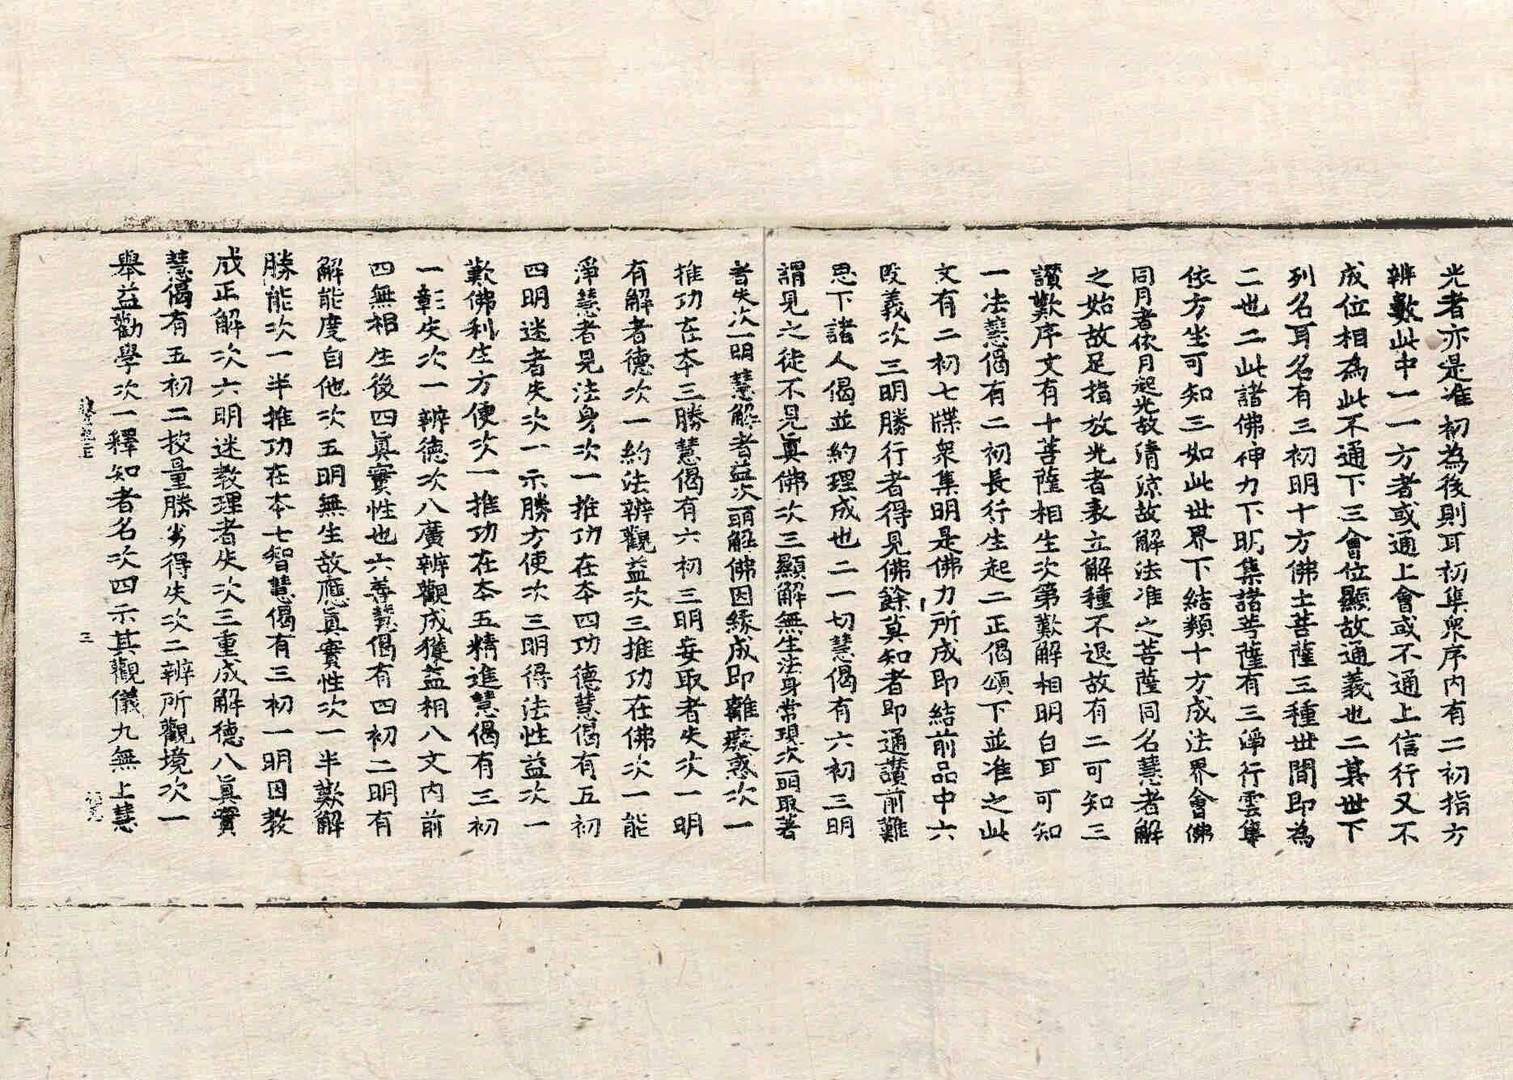 光者亦是准初為後則耳初集衆序內有二初指方
辨數此中一一方者或通上會或不通上信行又不
成位相為此不通下三會位顯故通義也二其世下
列名耳名有三初明十方佛土菩薩三種世間即為
二也二此諸佛伸力下明集諸菩薩有三淨行雲集
依方坐可知三如此世界下結類十方成法界會佛
同月者依月起光故清涼故解法准之菩薩同名慧者解
之始故足指放光者表立解種不退故有二可知三
讃歎序文有十菩薩相生次第歎解相明白耳可知
一法慧偈有二初長行生起二正偈頌下並准之此
文有二初七牒衆集明是佛力所成即結前品中六
段義次三明勝行者得見佛餘莫知者即通讃前難
思下諸人偈並約理成也二一切慧偈有六初三明
謂見之徒不見眞佛次三顯解無生法身常現次一明取著
者失次一明慧解者益次一頌解佛因緣成即離癡惑次一
推功在本三勝慧偈有六初三明妄取者失次一明
有解者德次一約法辨觀益次三推功在佛次一能
淨慧者見法身次一推功在本四功德慧偈有五初
四明迷者失次一示勝方便次三明得法性益次一
歎佛利生方便次一推功在本五精進慧偈有三初
一彰失次一辨德次八廣辨觀成獲益相八文內前
四無相生後四眞實性也六善慧偈有四初二明有
解能度自他次五明無生故應眞實性次一半歎解
勝能次一半推功在本七智慧偈有三初一明因教
成正解次六明迷教理者失次三重成解德八眞實
慧偈有五初二挍量勝劣得失次二辨所觀境次一
舉益勸學次一釋知者名次四示其觀儀九無上慧
三